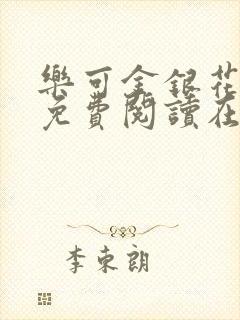 樂可金銀花
免費閱讀在
李東朗